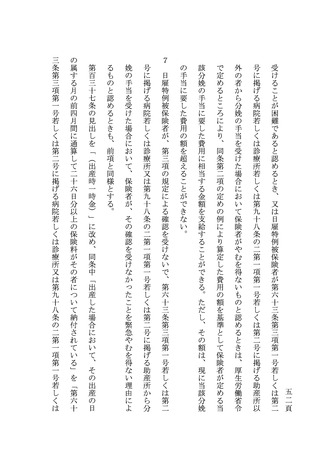 五二頁
受けることが困難であると認めるとき、又は日雇特例被保険者が第六十三条第三項第一号若しくは第二
号に掲げる病院若しくは診療所若しくは第九十八条の二第一項第一号若しくは第二号に掲げる助産所以
外の者から分娩の手当を受けた場合において保険者がやむを得ないものと認めるときは、厚生労働省令
で定めるところにより、同条第二項の定めの例により算定した費用の額を基準として保険者が定める当
該分娩の手当に要した費用に相当する金額を支給することができる。ただし、その額は、現に当該分娩
の手当に要した費用の額を超えることができない。
7 日雇特例被保険者が、第三項の規定による確認を受けないで、第六十三条第三項第一号若しくは第二
号に掲げる病院若しくは診療所又は第九十八条の二第一項第一号若しくは第二号に掲げる助産所から分
娩の手当を受けた場合において、保険者が、その確認を受けなかったことを緊急やむを得ない理由によ
るものと認めるときも、前項と同様とする。
第百三十七条の見出しを「(出産時一時金)」に改め、同条中「出産した場合において、その出産の日
の属する月の前四月間に通算して二十六日分以上の保険料がその者について納付されている」を「第六十
三条第三項第一号若しくは第二号に掲げる病院若しくは診療所又は第九十八条の二第一項第一号若しくは